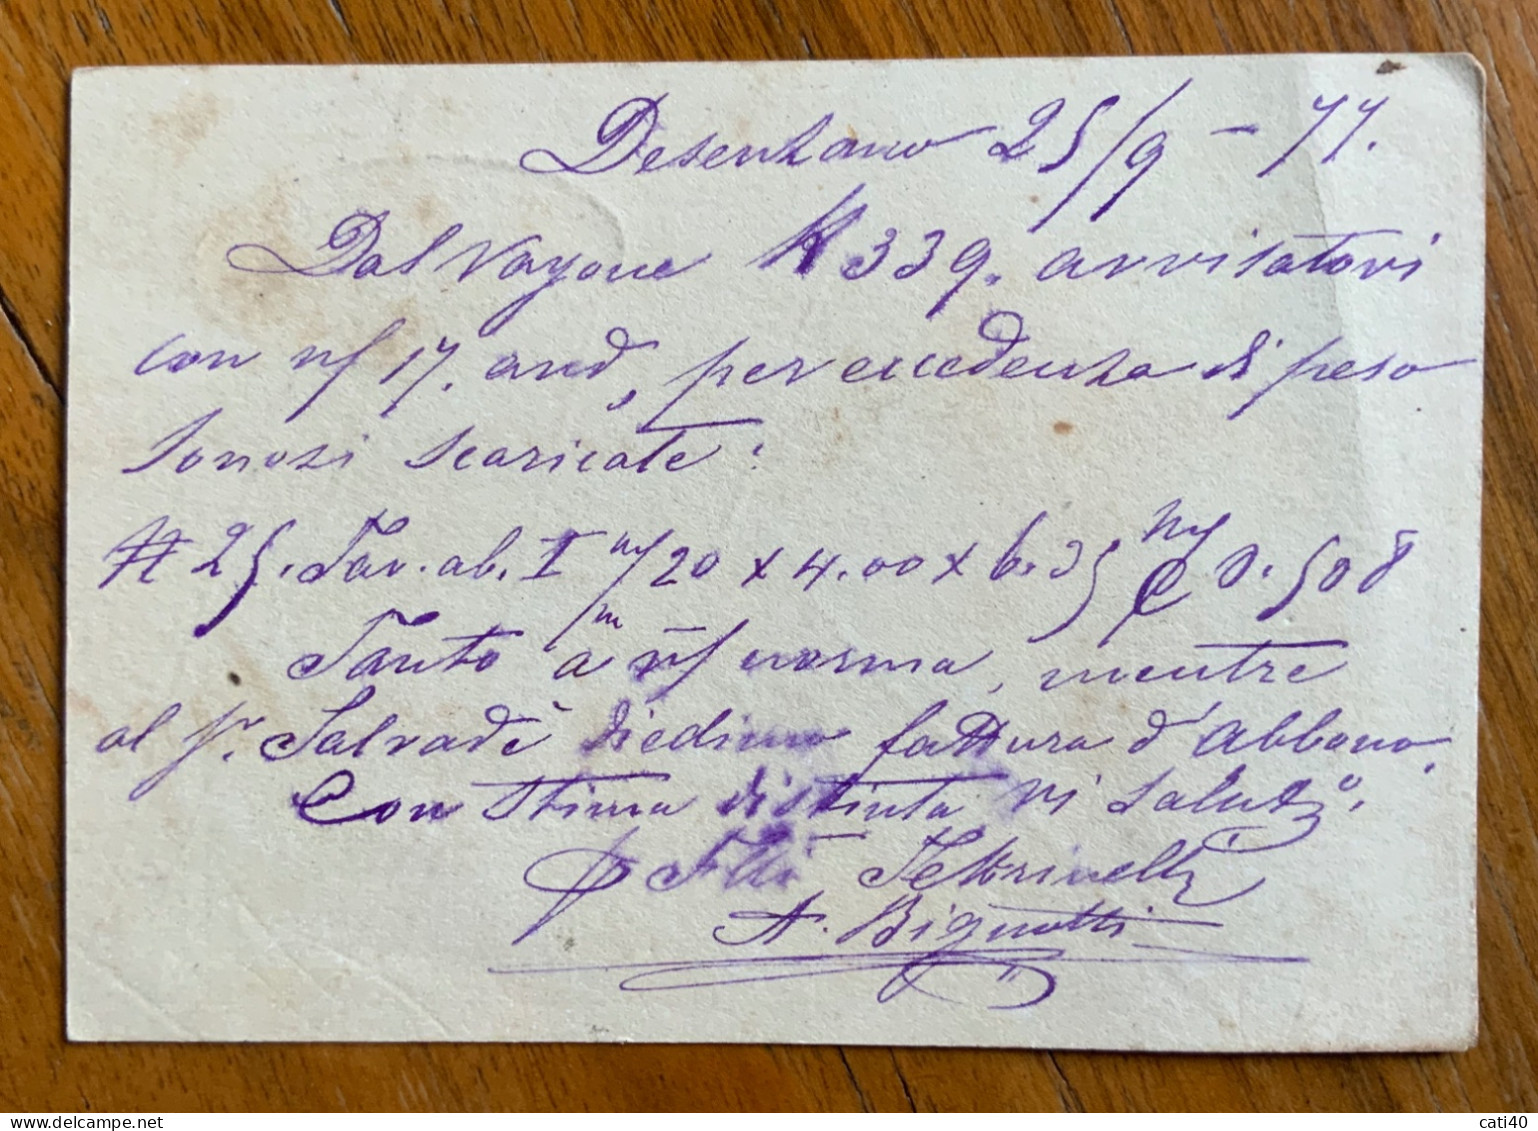 Desenzano 25/9 - 77.
Dal Vagone K 339. avvisatovi
con nf 17. and, per eccedenza di peso
sonosi scaricate:
N 25. Tav. ab. I m/m 20 x 4.00 x 6.35 0.508
Tanto a vf norma, mentre
al Sr. Salvadè diedimo fattura d'abbono.
Con stima distinta vi saluto.
p Flli Feltrinelli
A. Bignotti
cati40
www.delcampe.net